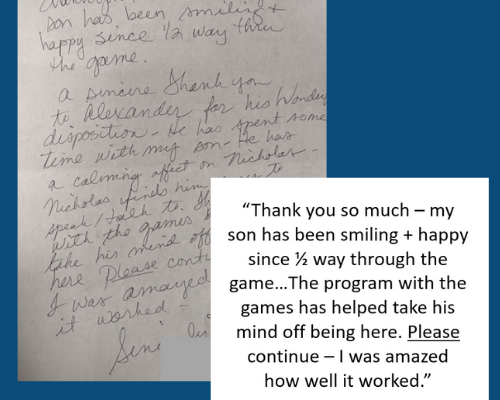 son has been smiling +
happy since 1/2 way thru
the game.
a sincere Thank you
to Alexander for his Wonder
disposition - He has spent some
time with my son - He has
a calming affect on Nicholas -
Nicholas finds him to
speak / talk to.
with the games
take his mind off
here. Please conti
I was amazed
it worked -
Sin
“Thank you so much – my
son has been smiling + happy
since ½ way through the
game…The program with the
games has helped take his
mind off being here. Please
continue – I was amazed
how well it worked.”